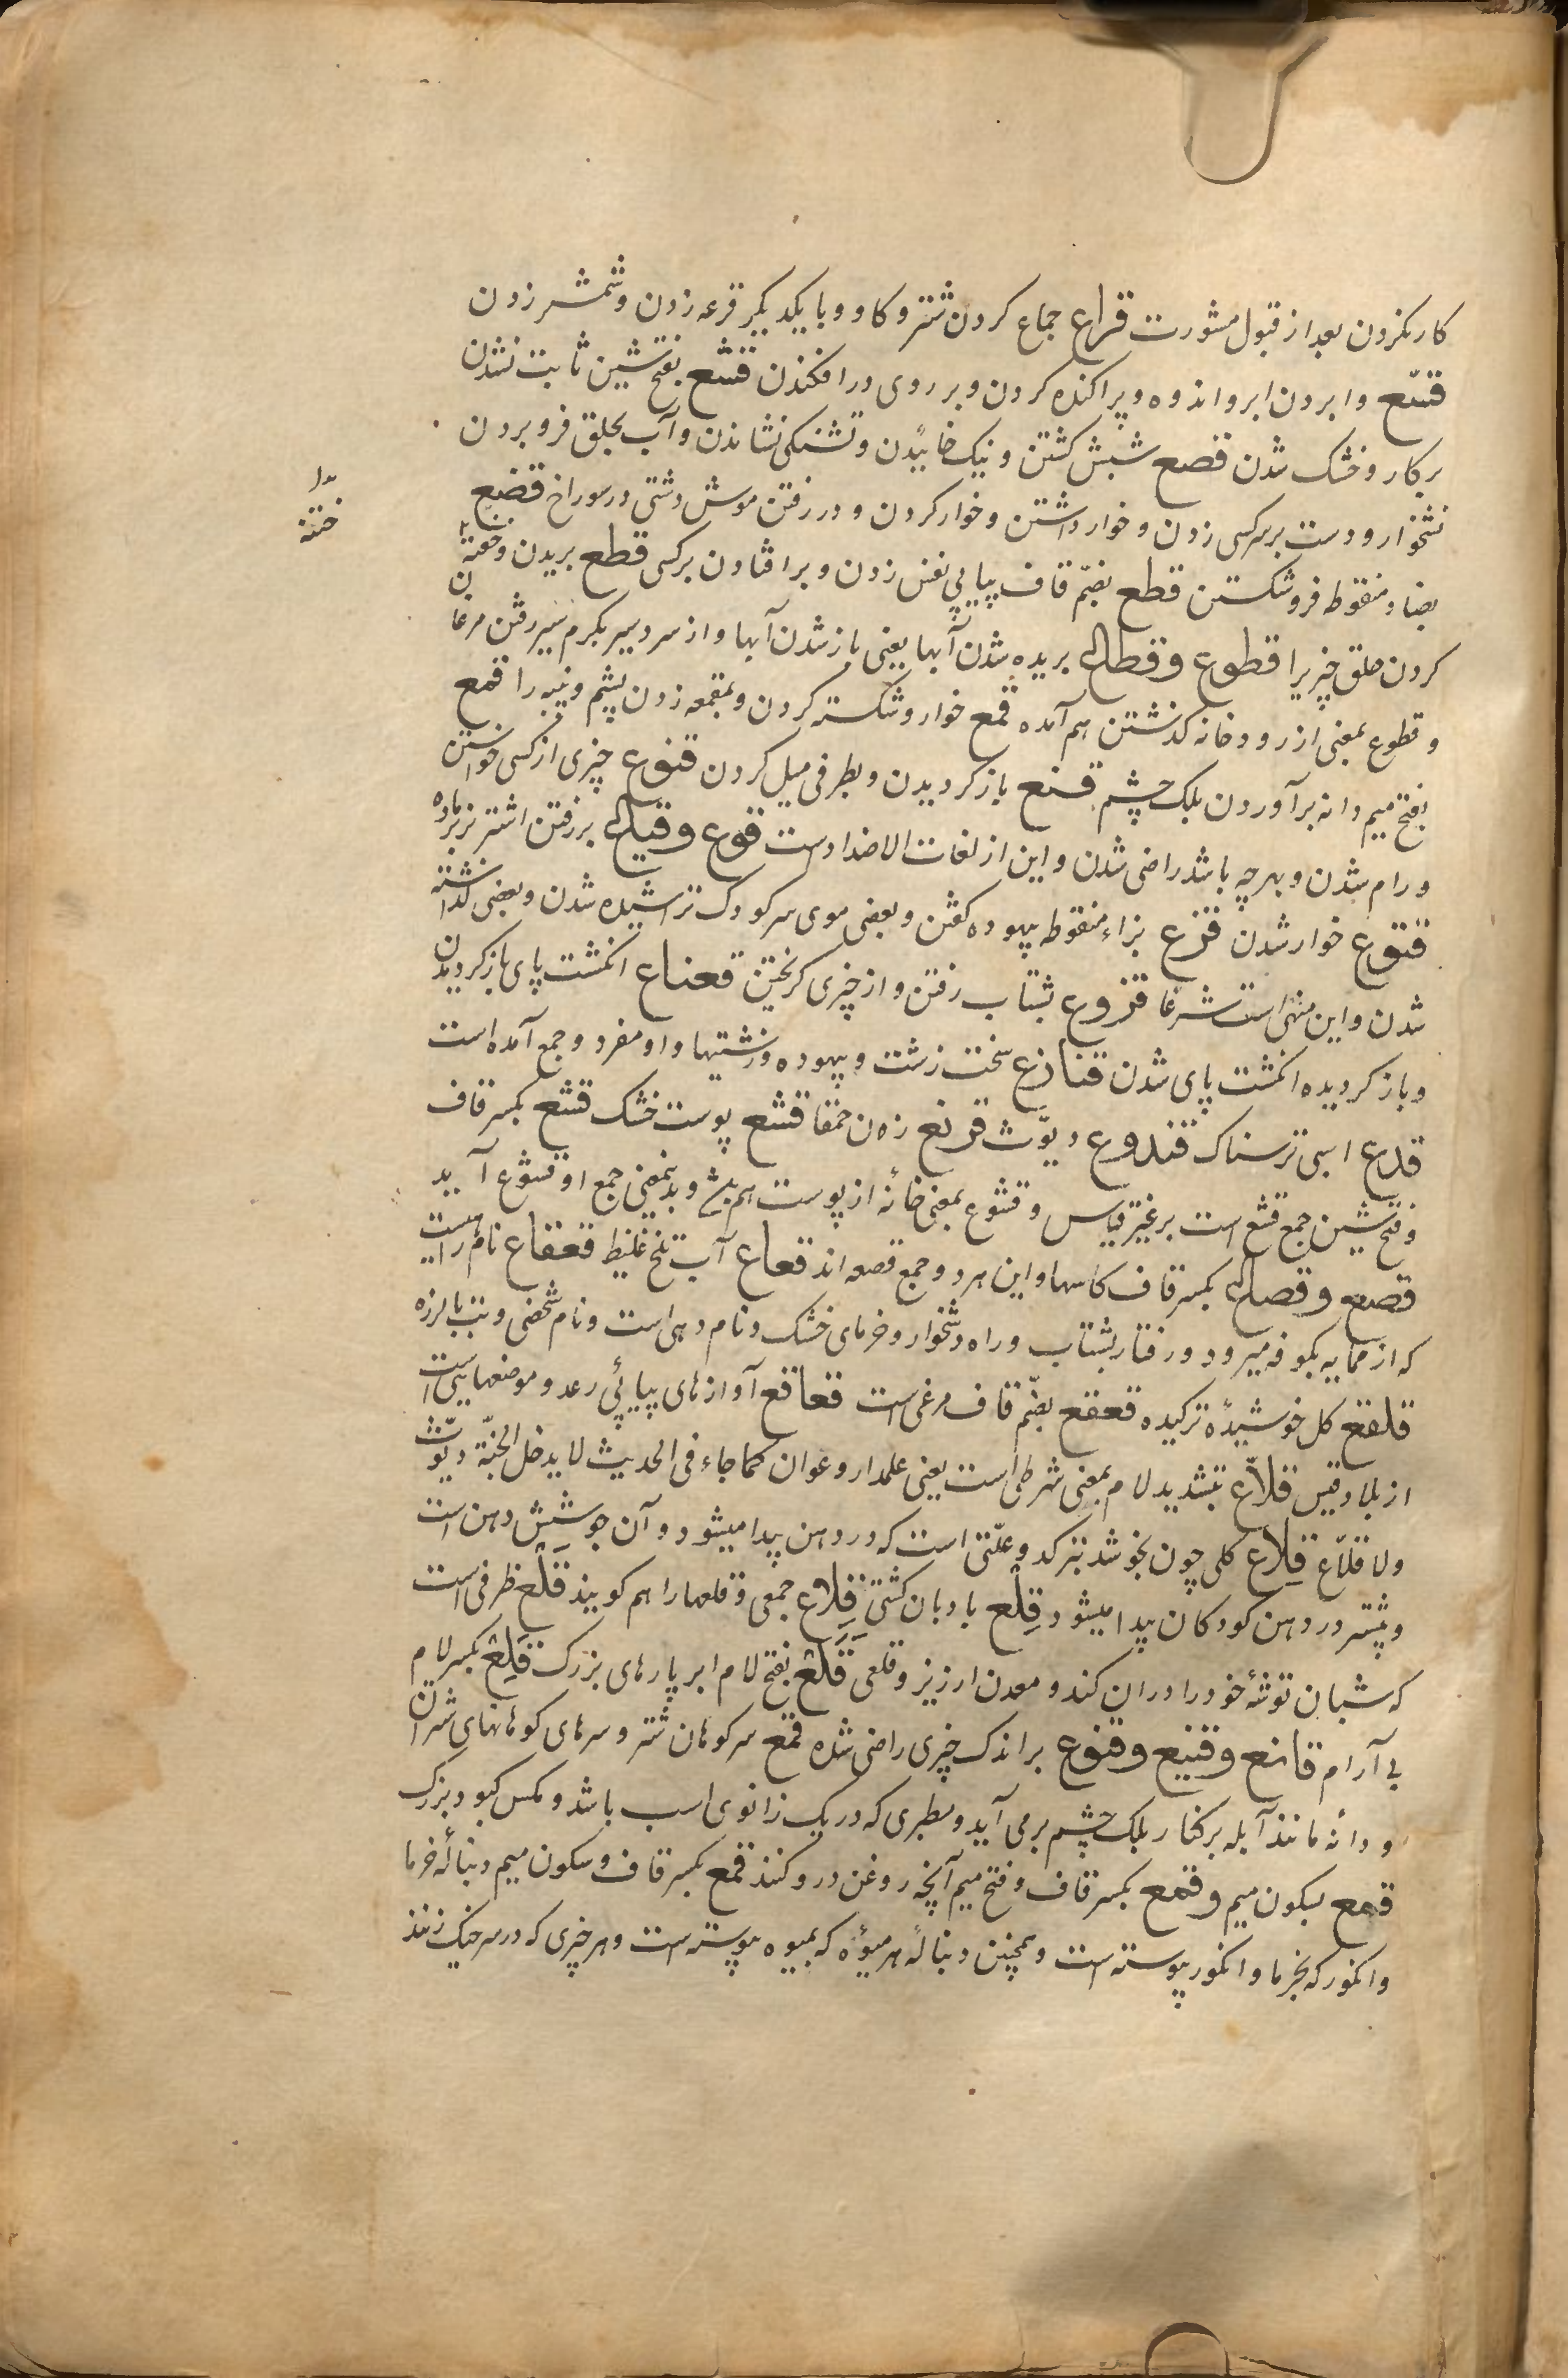 کار نکردن بعد از قبول مشورت قراع جماع کردن شتر و کاو و با یکدیکر قرعه زدن و شمشیر زدن
قشع وا بردن ابر و اندوه و پراکنده کردن و بر روی در افکندن قشع بفتح شین ثابت نشدن
بر کار و خشک شدن قصع شپش کشتن و نیک خاییدن و تشنکی نشاندن و آب بحلق فرو بردن
نشخوار و دست بر سر کسی زدن و خوار داشتن و خوار کردن و در رفتن موش دشتی در سوراخ قضع
بضاد منقوطه فرو شکستن قطع بضمّ قاف پیاپی نفس زدن و بر افتادن بر کسی قطع بریدن و خفه
کردن حلق چیزیرا قطوع وقطاع بریده شدن آبها یعنی باز شدن آبها و از سردسیر بکرم سیر رفتن مرغان
و قطوع بمعنی از رودخانه کذشتن هم آمده قمع خوار و شکسته کردن و بمقمعه زدن پشم و پنبه را قمع
بفتح میم دانه برآوردن پلک چشم قنع باز کردیدن و بطرفی میل کردن قنوع چیزی از کسی خواستن
و رام شدن و بهرچه باشد راضی شدن و این از لغات الاضداد ست قوع وقیاع بر رفتن اشتر نر بر ماده
قنوع خوار شدن قزع بزاء منقوطه بیهوده کفتن و بعضی موی سر کودک تراشیده شدن و بعضی کذاشته
شدن و این منهی است شرعا قزوع بشتاب رفتن و از چیزی کریختن قعناع انکشت پای باز کردیدن
و باز کردیده انکشت پای شدن قناذع سخت زشت و بیهوده و زشتیها و او مفرد و جمع آمده است
قدع اسبی ترسناک قندوع دیوّث قرثع زن حمقا قشع پوست خشک قشع بکسر قاف
و فتح شین جمع قشع است بر غیر قیاس و قشوع بمعنی خانه از پوست هم باشد و بدین معنی جمع او قشوع آید
قصع وقصاع بکسر قاف کاسها و این هر دو جمع قصعه اند قعاع آب تلخ غلیظ قعقاع نام راهیست
که از یمامه بکوفه میرود و رفتار بشتاب و راه دشخوار و خرمای خشک و نام دهی است و نام شخصی و تب با لرزه
قلفع کل خوشیدهٔ ترکیده قعقع بضمّ قاف مرغی است قعاقع آوازهای پیاپئی رعد و موضعهایی است
از بلاد قیس قلاّع بتشدید لام بمعنی شرطی است یعنی علمدار و عوان کما جاء فی الحدیث لا یدخل الجنّة دیّوث
ولا قلاّع قلاع کلی چون بخوشد بترکد و علّتی است که در دهن پیدا میشود و آن جوشش دهن است
و بیشتر در دهن کودکان پیدا میشود قِلْع بادبان کشتی قِلاع جمعی و قلعها را هم کویند قَلْع ظرفی است
که شبان توشهٔ خود را در ان کند و معدن ارزیز و قلعی قَلَع بفتح لام ابر پارهای بزرک قَلِع بکسر لام
بی آرام قانع وقنیع وقنوع بر اندک چیزی راضی شده قمع سر کوهان شتر و سرهای کوهانهای شتران
و دانه مانند آبله بر کنار پلک چشم برمی آید و سطبری که در یک زانوی اسب باشد و مکس کبود بزرک
قمع بسکون میم وقمع بکسر قاف و فتح میم آنچه روغن در و کنند قمع بکسر قاف و سکون میم دنبالهٔ خرما
و انکور که بخرما و انکور پیوسته است و همچنین دنبالهٔ هر میوهٔ که بمیوه پیوسته است و هر چیزی که در سر خیک زنند
ختنه